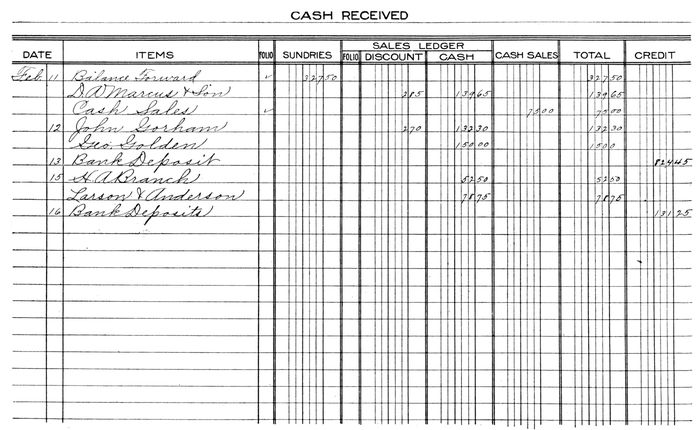 CASH RECEIVED
DATE ITEMS FOLIO SUNDRIES SALES LEDGER CASH SALES TOTAL CREDIT
FOLIO DISCOUNT CASH
Feb 11 Balance Forward ✓ 32750 32750
D. A. Marcus & Son 285 13965 13965
Cash Sales ✓ 7500 7500
12 John Gorham 270 13230 13230
Geo. Golden 15000 1500
13 Bank Deposit 82445
15 H. A. Branch 5250 5250
Larson & Anderson 7875 7875
16 Bank Deposits 13125